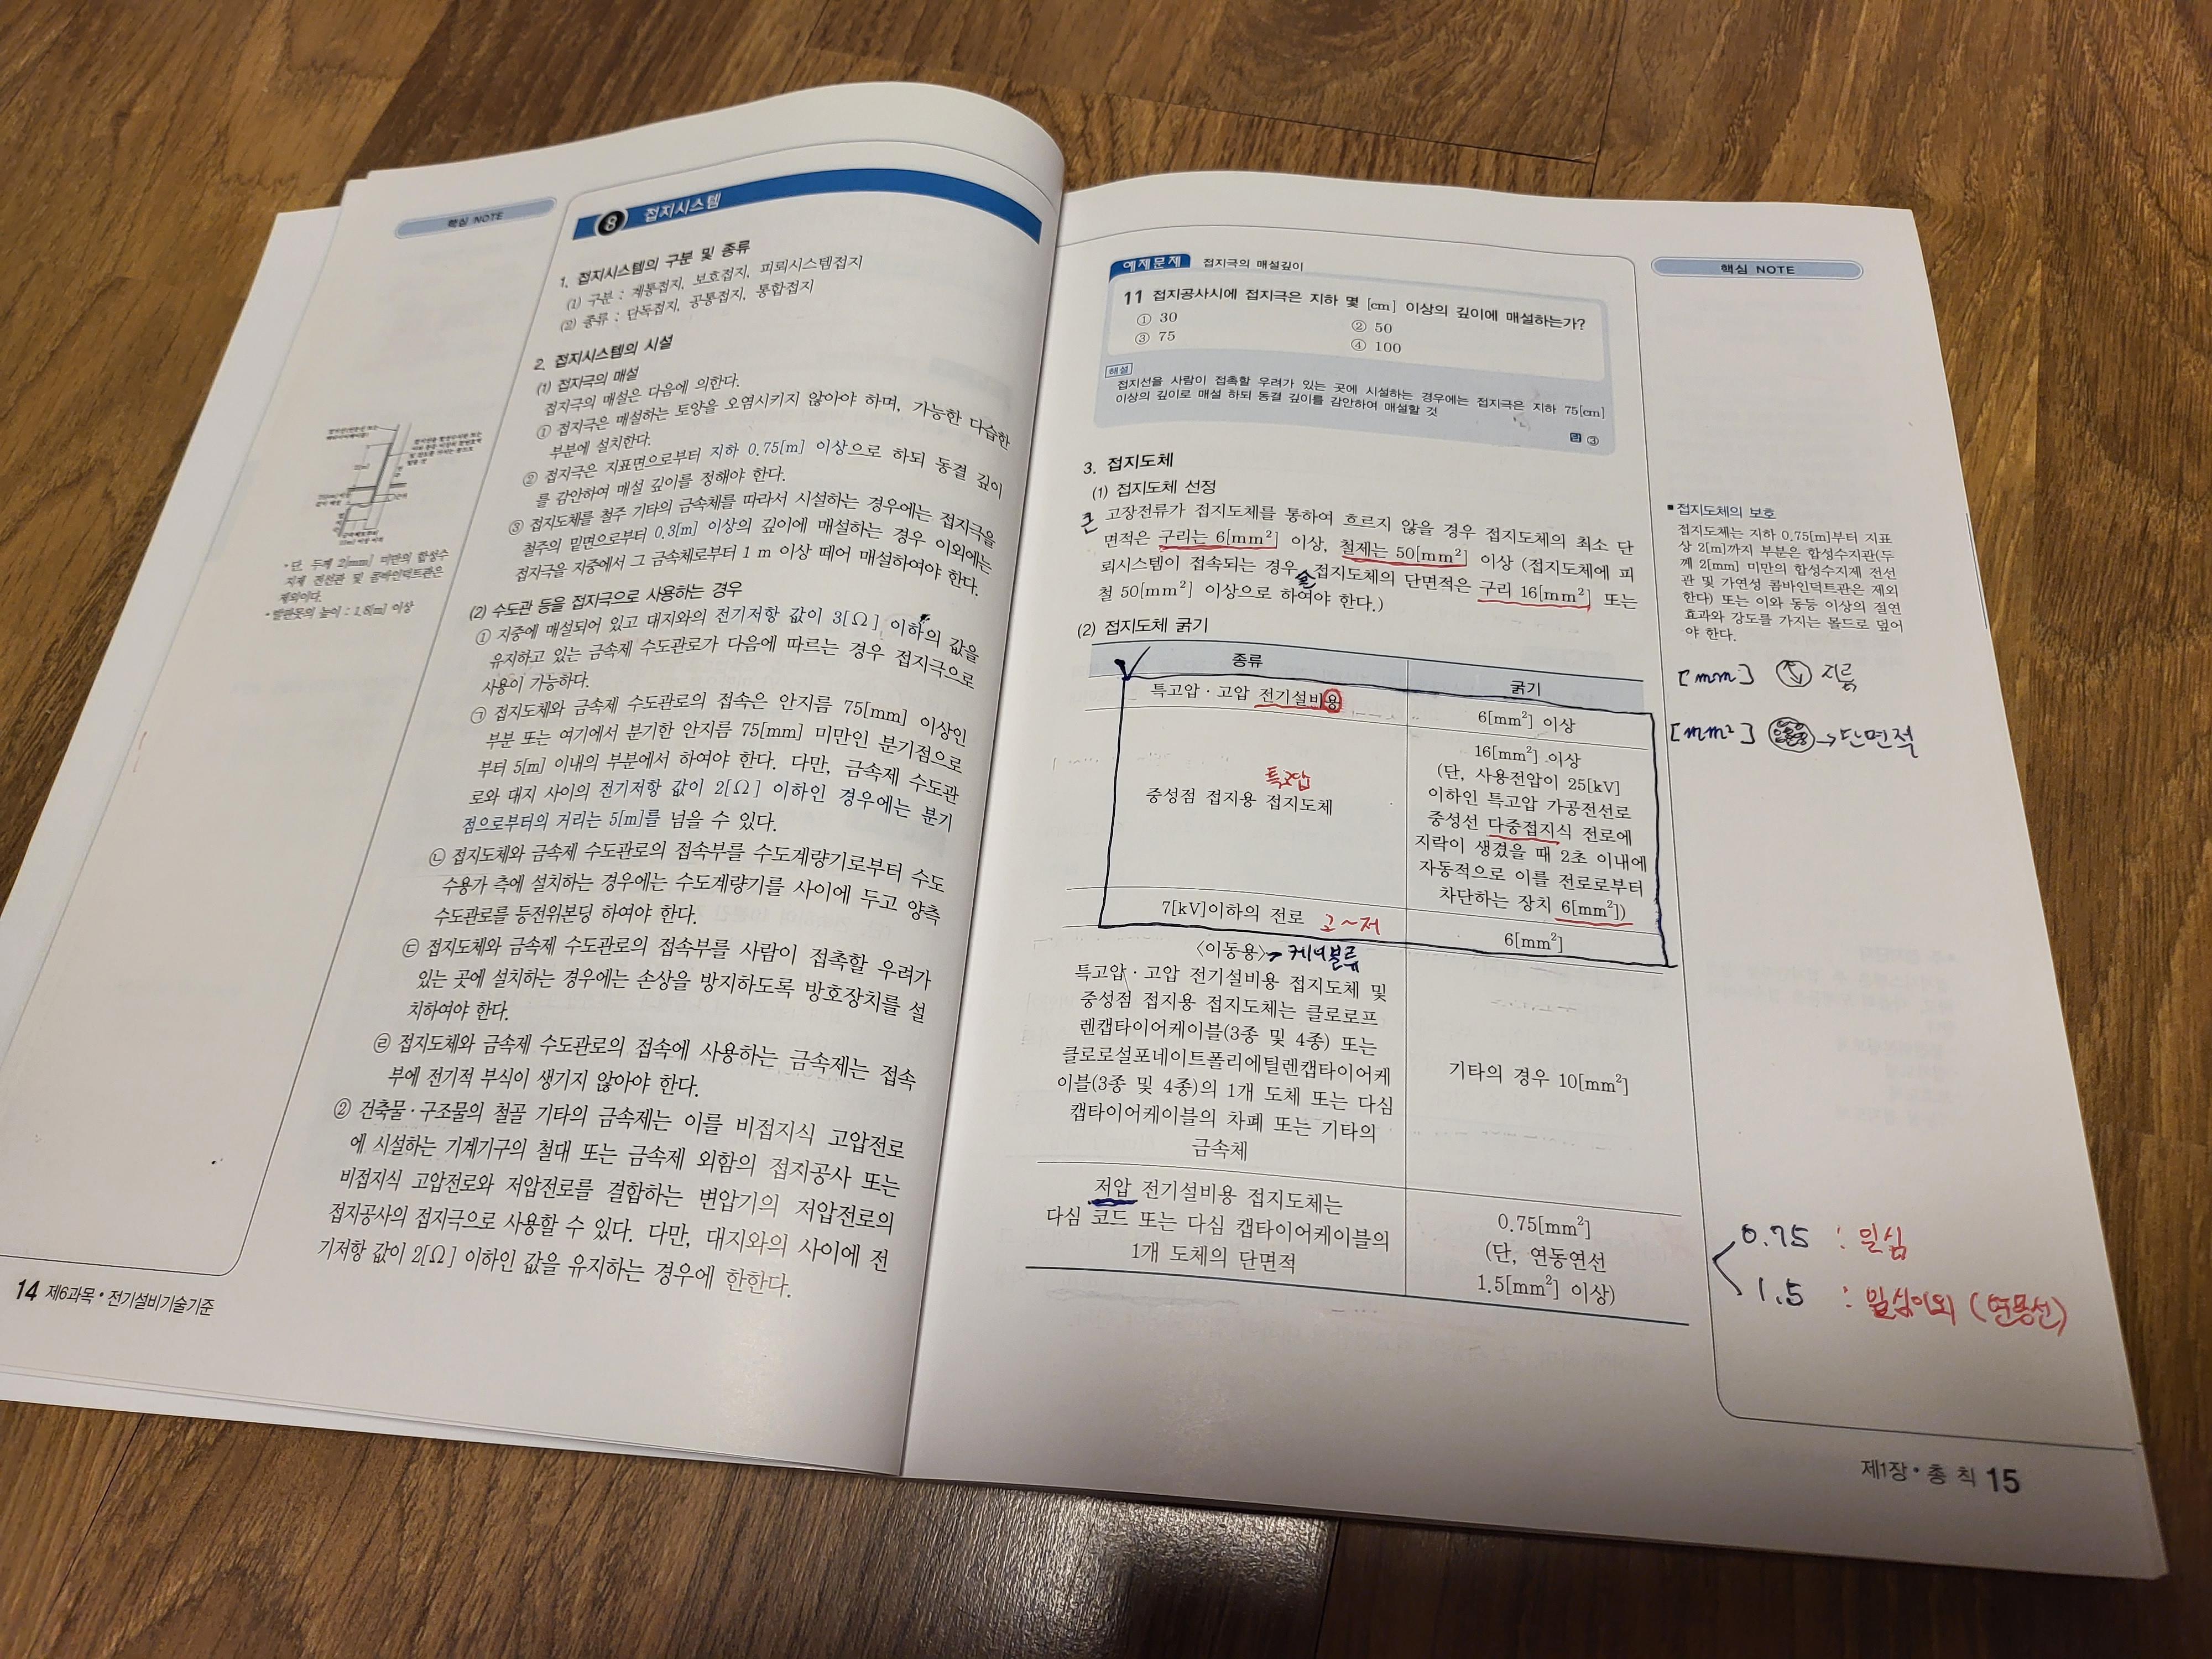 핵심 NOTE
8 접지시스템
1. 접지시스템의 구분 및 종류
(1) 구분 : 계통접지, 보호접지, 피뢰시스템접지
(2) 종류 : 단독접지, 공통접지, 통합접지
2. 접지시스템의 시설
(1) 접지극의 매설
접지극의 매설은 다음에 의한다.
① 접지극은 매설하는 토양을 오염시키지 않아야 하며, 가능한 다습한
부분에 설치한다.
② 접지극은 지표면으로부터 지하 0.75[m] 이상으로 하되 동결 깊이
를 감안하여 매설 깊이를 정해야 한다.
③ 접지도체를 철주 기타의 금속체를 따라서 시설하는 경우에는 접지극을
철주의 밑면으로부터 0.3[m] 이상의 깊이에 매설하는 경우 이외에는
접지극을 지중에서 그 금속체로부터 1 m 이상 떼어 매설하여야 한다.
(2) 수도관 등을 접지극으로 사용하는 경우
① 지중에 매설되어 있고 대지와의 전기저항 값이 3[Ω] 이하의 값을
유지하고 있는 금속제 수도관로가 다음에 따르는 경우 접지극으로
사용이 가능하다.
㉠ 접지도체와 금속제 수도관로의 접속은 안지름 75[mm] 이상인
부분 또는 여기에서 분기한 안지름 75[mm] 미만인 분기점으로
부터 5[m] 이내의 부분에서 하여야 한다. 다만, 금속제 수도관
로와 대지 사이의 전기저항 값이 2[Ω] 이하인 경우에는 분기
점으로부터의 거리는 5[m]를 넘을 수 있다.
㉡ 접지도체와 금속제 수도관로의 접속부를 수도계량기로부터 수도
수용가 측에 설치하는 경우에는 수도계량기를 사이에 두고 양측
수도관로를 등전위본딩 하여야 한다.
㉢ 접지도체와 금속제 수도관로의 접속부를 사람이 접촉할 우려가
있는 곳에 설치하는 경우에는 손상을 방지하도록 방호장치를 설
치하여야 한다.
㉣ 접지도체와 금속제 수도관로의 접속에 사용하는 금속제는 접속
부에 전기적 부식이 생기지 않아야 한다.
② 건축물·구조물의 철골 기타의 금속제는 이를 비접지식 고압전로
에 시설하는 기계기구의 철대 또는 금속제 외함의 접지공사 또는
비접지식 고압전로와 저압전로를 결합하는 변압기의 저압전로의
접지공사의 접지극으로 사용할 수 있다. 다만, 대지와의 사이에 전
기저항 값이 2[Ω] 이하인 값을 유지하는 경우에 한한다.
• 단, 두께 2[mm] 미만의 합성수
지제 전선관 및 콤바인덕트관은
제외이다.
• 발판못의 높이 : 1.8[m] 이상
14 제6과목 • 전기설비기술기준
예제문제 접지극의 매설깊이
11 접지공사시에 접지극은 지하 몇 [cm] 이상의 깊이에 매설하는가?
① 30 ② 50
③ 75 ④ 100
해설
접지선을 사람이 접촉할 우려가 있는 곳에 시설하는 경우에는 접지극은 지하 75[cm]
이상의 깊이로 매설 하되 동결 깊이를 감안하여 매설할 것
답 ③
3. 접지도체
(1) 접지도체 선정
큰 고장전류가 접지도체를 통하여 흐르지 않을 경우 접지도체의 최소 단
면적은 구리는 6[mm²] 이상, 철제는 50[mm²] 이상 (접지도체에 피
뢰시스템이 접속되는 경우 접지도체의 단면적은 구리 16[mm²] 또는
철 50[mm²] 이상으로 하여야 한다.)
(2) 접지도체 굵기
종류 굵기
특고압·고압 전기설비용 6[mm²] 이상
특고압
중성점 접지용 접지도체
16[mm²] 이상
(단, 사용전압이 25[kV]
이하인 특고압 가공전선로
중성선 다중접지식 전로에
지락이 생겼을 때 2초 이내에
자동적으로 이를 전로로부터
차단하는 장치 6[mm²])
7[kV]이하의 전로 고~저 6[mm²]
〈이동용〉→ 케이블류
특고압·고압 전기설비용 접지도체 및
중성점 접지용 접지도체는 클로로프
렌캡타이어케이블(3종 및 4종) 또는
클로로설포네이트폴리에틸렌캡타이어케
이블(3종 및 4종)의 1개 도체 또는 다심
캡타이어케이블의 차폐 또는 기타의
금속체
기타의 경우 10[mm²]
저압 전기설비용 접지도체는
다심 코드 또는 다심 캡타이어케이블의
1개 도체의 단면적
0.75[mm²]
(단, 연동연선
1.5[mm²] 이상)
핵심 NOTE
■ 접지도체의 보호
접지도체는 지하 0.75[m]부터 지표
상 2[m]까지 부분은 합성수지관(두
께 2[mm] 미만의 합성수지제 전선
관 및 가연성 콤바인덕트관은 제외
한다) 또는 이와 동등 이상의 절연
효과와 강도를 가지는 몰드로 덮어
야 한다.
[mm] 지름
[mm²] → 단면적
0.75 : 일심
1.5 : 일심이외 (연동선)
제1장 • 총 칙 15